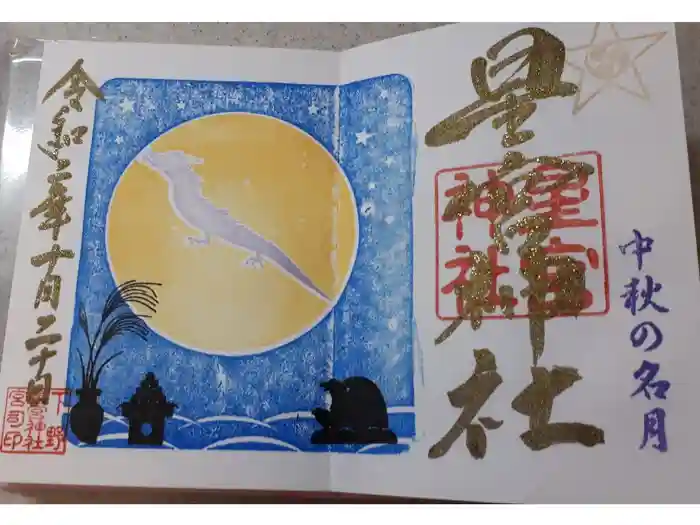 中秋の名月
星宮神社
星宮
神社
令和二年十月二十日
下野
星宮神社
宮司印